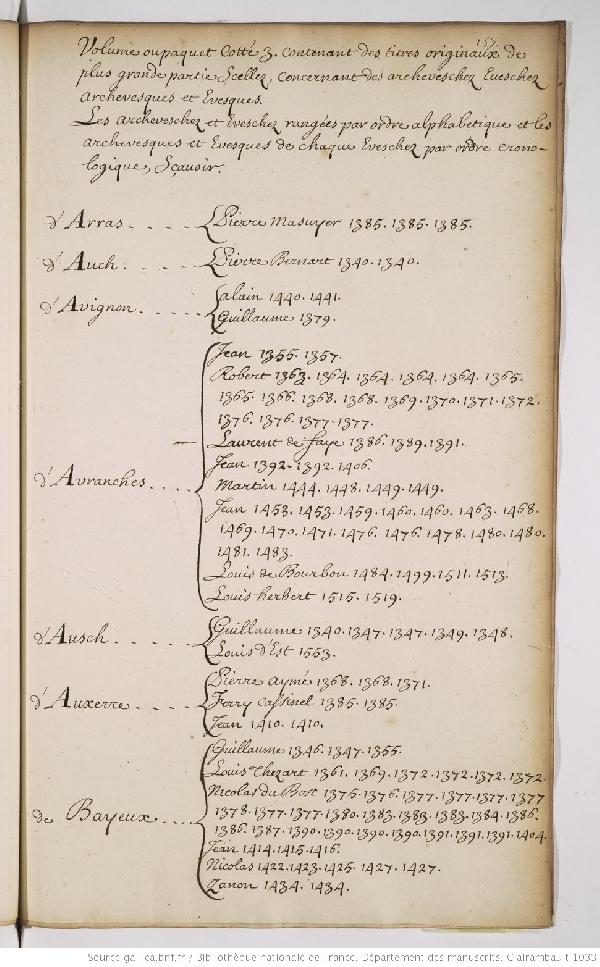 157
Volume ou paquet Cotté 3. contenant des titres originaux de
plus grande partie Scellez, concernant des archeveschez Eveschez
archevesques et Evesques.
Les archeveschez et Eveschez rangées par ordre alphabetique et les
archevesques et Evesques de chaque Eveschez par ordre crono-
logique, Sçavoir.
d'Arras. . . . . Pierre Masuyer 1385. 1385. 1385.
d'Auch. . . . . Pierre Bernart 1340. 1340.
d'Avignon. . . . . alain 1440. 1441.
Guillaume 1379.
Jean 1355. 1357.
Robert 1363. 1364. 1364. 1364. 1364. 1365.
1365. 1366. 1368. 1368. 1369. 1370. 1371. 1372.
1376. 1376. 1377. 1377.
Laurent de faye 1386. 1389. 1391.
Jean 1392. 1392. 1406.
d'Avranches. . . . Martin 1444. 1448. 1449. 1449.
Jean 1453. 1453. 1459. 1460. 1460. 1463. 1468.
1469. 1470. 1471. 1476. 1476. 1478. 1480. 1480.
1481. 1483.
Louis de Bourbon 1484. 1499. 1511. 1513.
Louis herbert 1515. 1519.
d'Ausch. . . . . Guillaume 1340. 1347. 1347. 1349. 1348.
Louis d'Est 1553.
Pierre aymé 1368. 1368. 1371.
d'Auxerre. . . . . Ferry Cassinel 1385. 1385.
Jean 1410. 1410.
Guillaume 1346. 1347. 1355.
Louis Thezart 1361. 1369. 1372. 1372. 1372. 1372.
Nicolas du Bosc 1375. 1376. 1377. 1377. 1377. 1377
1378. 1377. 1377. 1380. 1383. 1383. 1383. 1384. 1386.
de Bayeux. . . . 1386. 1387. 1390. 1390. 1390. 1390. 1391. 1391. 1391. 1404.
Jean 1414. 1415. 1416.
Nicolas 1422. 1423. 1425. 1427. 1427.
Zanon 1434. 1434.
Source gallica.bnf.fr / Bibliothèque nationale de France. Département des manuscrits. Clairambault 1033